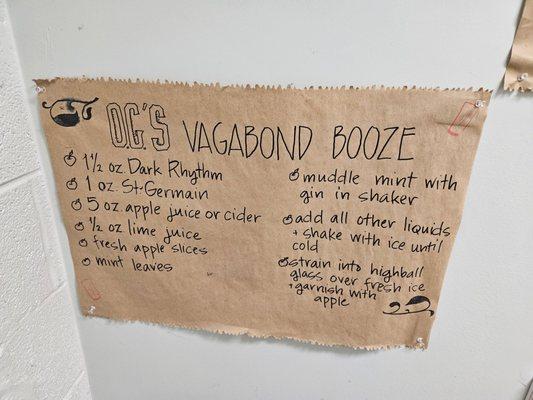 O.G.'S VAGABOND BOOZE
1 1/2 oz. Dark Rhythm
1 oz. St-Germain
5 oz. apple juice or cider
1/2 oz lime juice
fresh apple slices
mint leaves
muddle mint with
gin in shaker
add all other liquids
+ shake with ice until
cold
strain into highball
glass over fresh ice
+ garnish with
apple